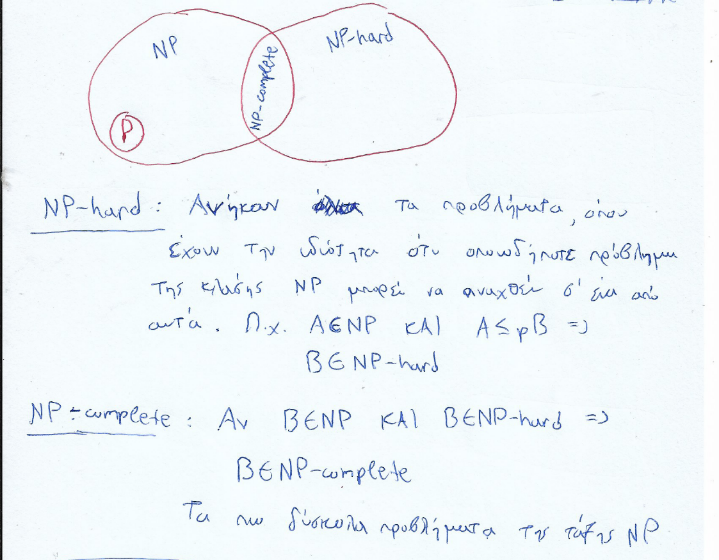 NP
NP-hard
NP-complete
P
NP-hard: Ανήκουν τα προβλήματα, όπου
έχουν την ιδιότητα ότι οποιοδήποτε πρόβλημα
της κλάσης NP μπορεί να αναχθεί σ' ένα από
αυτά. Π.χ. A∈NP ΚΑΙ A≤pB =>
B∈NP-hard
NP-complete: Αν B∈NP ΚΑΙ B∈NP-hard =>
B∈NP-complete
Τα πιο δύσκολα προβλήματα της τάξης NP